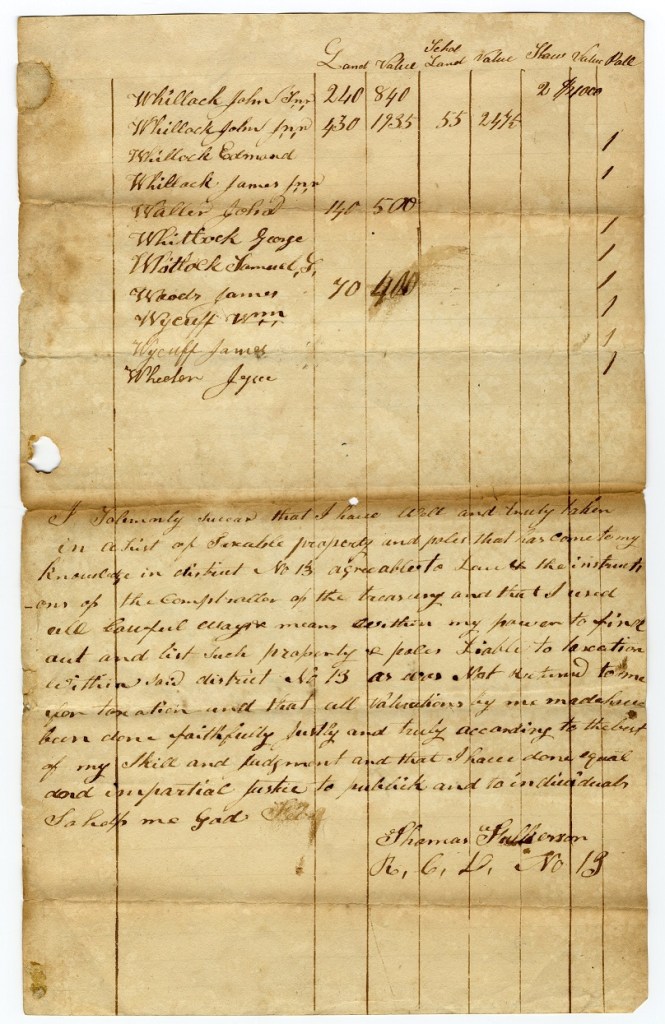 Land Value Schol Land Value Slave Value Pole
Whillock John Snr 240 840 2 $1000
Whillock John Jnr 430 1935 55 247½
Whillock Edmond 1
Whillock James Jnr 1
Waller John 140 500
Whittock George 1
Whitlock Samuel, S, 1
Woods James 70 400 1
Wycuff Wm 1
Wycuff James 1
Wheelen Jesse 1
I Solemnly swear that I have Well and truly taken
in a List of Taxable property and poles that has come to my
knowledge in district No 13 agreable to Law & the instructi
-ons of the Comptroller of the treasury and that I used
all lawful ways & means within my power to find
out and list such property & poles Liable to taxation
Within said district No 13 as was Not Returned to me
for taxation and that all valuations by me made have
been done faithfuly Justly and truly according to the best
of my Skill and Judgment and that I have done equal
and impartial Justice to publick and to individuals
So help me God
Thomas Fulkerson
R, C, D, No 13